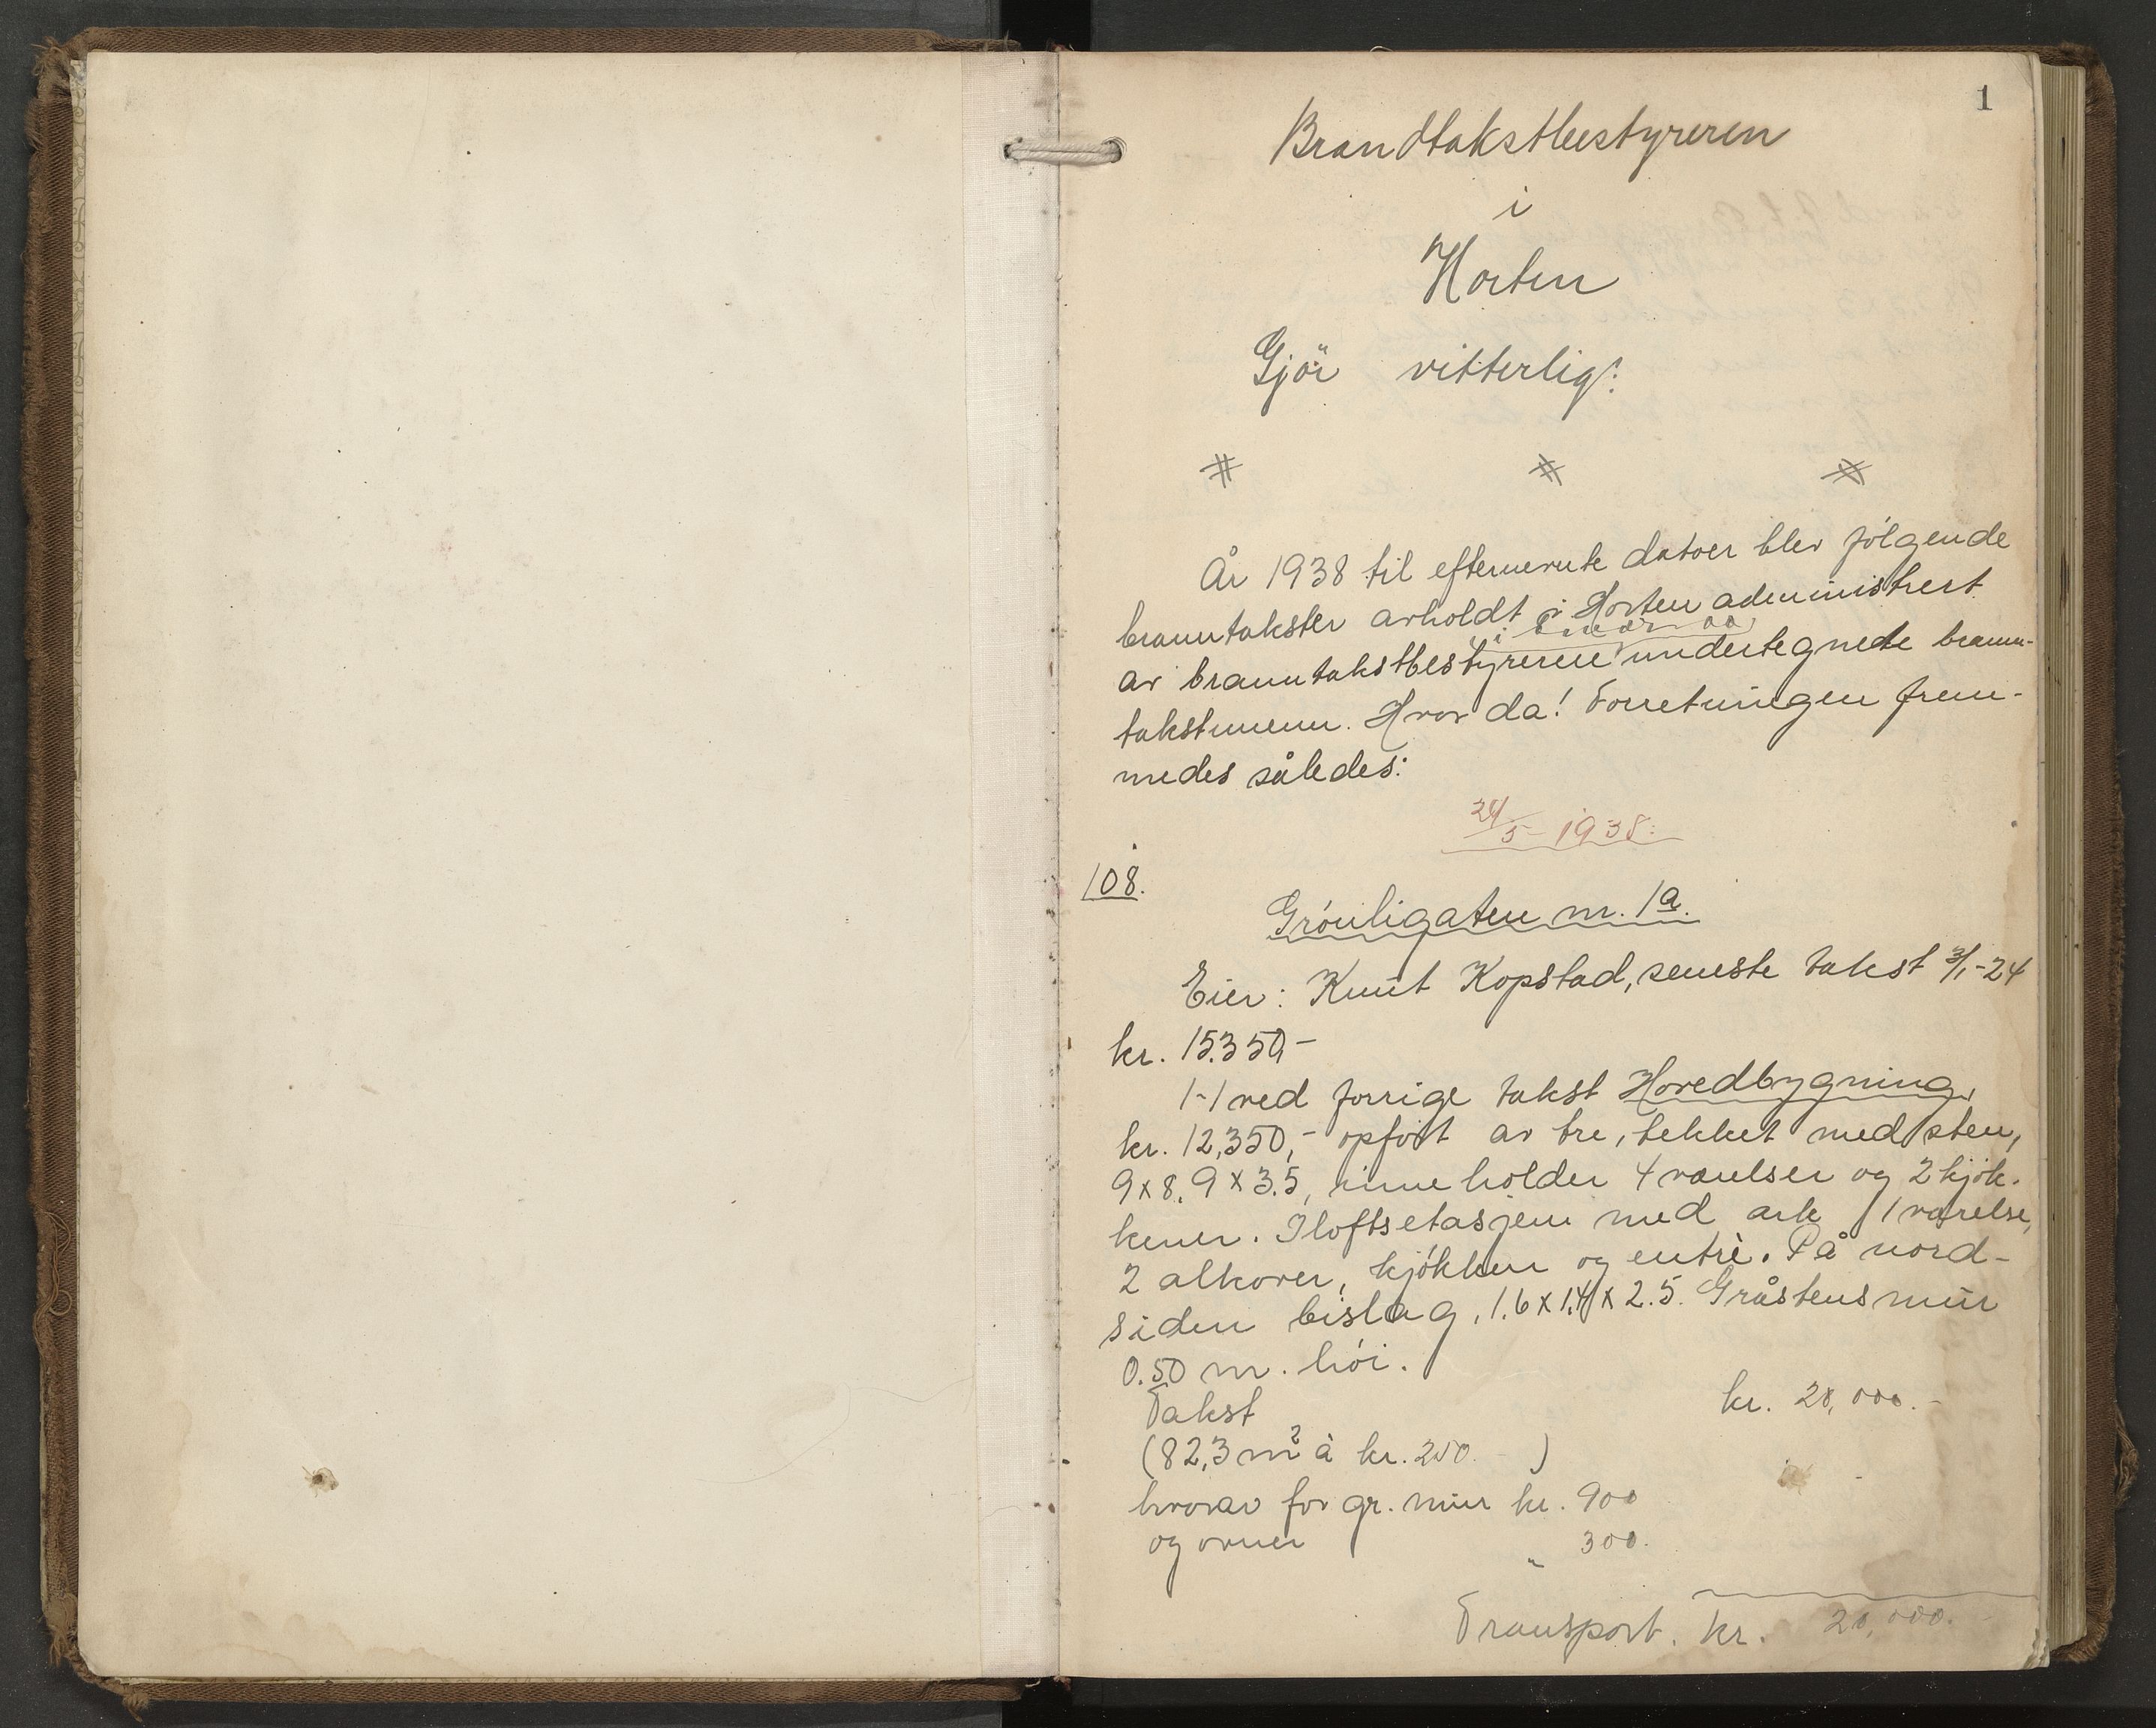 1
Brandtakstbestyreren
i
Horten
Gjör vitterlig:
# # #
År 1938 til efternevnte datoer blev følgende
branntakster avholdt i Horten administrert
av branntakstbestyreren undertegnede brann-
takstmenn. Hvor da! Forretningen frem-
medes således:
24/5 1938.
108.
Grönligaten nr. 1a.
Eier: Knut Kopstad, seneste takst 3/1-24
kr. 15.350,-
1-1 ved forrige takst Hovedbygning,
kr. 12,350,- opført av tre, tekket med sten,
9 x 8.9 x 3.5, inneholder 4 værelser og 2 kjøk-
kener. I loftsetasjen med ark 1 værelse,
2 alkover, kjøkken og entrè. På nord-
siden bislag, 1.6 x 1.4 x 2.5. Gråstensmur
0.50 m. høi.
Takst kr. 20,000.-
(82,3 m2 à kr. 250.- )
hvorav for gr. mur kr. 900
og ovner " 300.
Transport. kr. 20,000.-